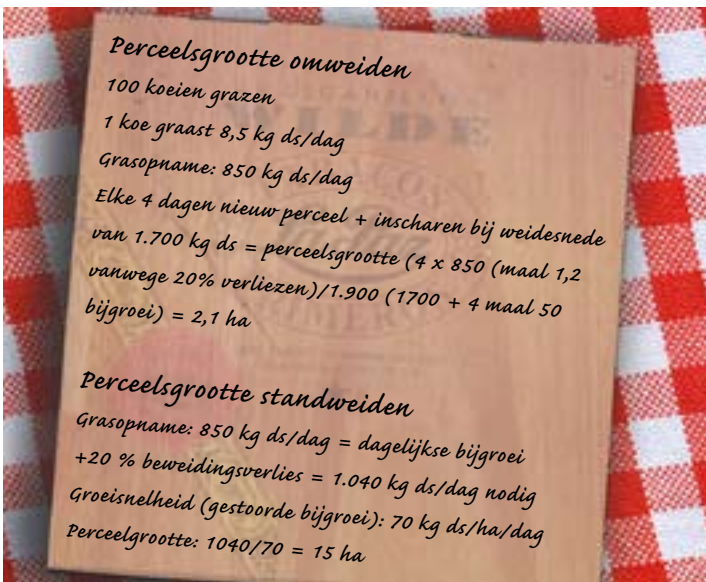 Perceelsgrootte omweiden
100 koeien grazen
1 koe graast 8,5 kg ds/dag
Grasopname: 850 kg ds/dag
Elke 4 dagen nieuw perceel + inscharen bij weidesnede
van 1.700 kg ds = perceelsgrootte (4 x 850 (maal 1,2
vanwege 20% verliezen)/1.900 (1700 + 4 maal 50
bijgroei) = 2,1 ha
Perceelsgrootte standweiden
Grasopname: 850 kg ds/dag = dagelijkse bijgroei
+20 % beweidingsverlies = 1.040 kg ds/dag nodig
Groeisnelheid (gestoorde bijgroei): 70 kg ds/ha/dag
Perceelgrootte: 1040/70 = 15 ha